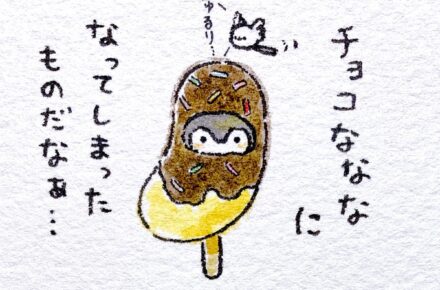 チョコななな
に
なってしまった
ものだなぁ…
ゅるり